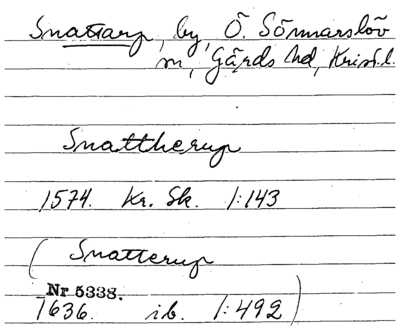 Snattarp, by, Ö. Sönnarslöv
sn, Gärds hd, Krist. l.
Snattherup
1574. Kr. Sk. 1:143
(Snatterup
Nr 5338.
1636. ib. 1:492)